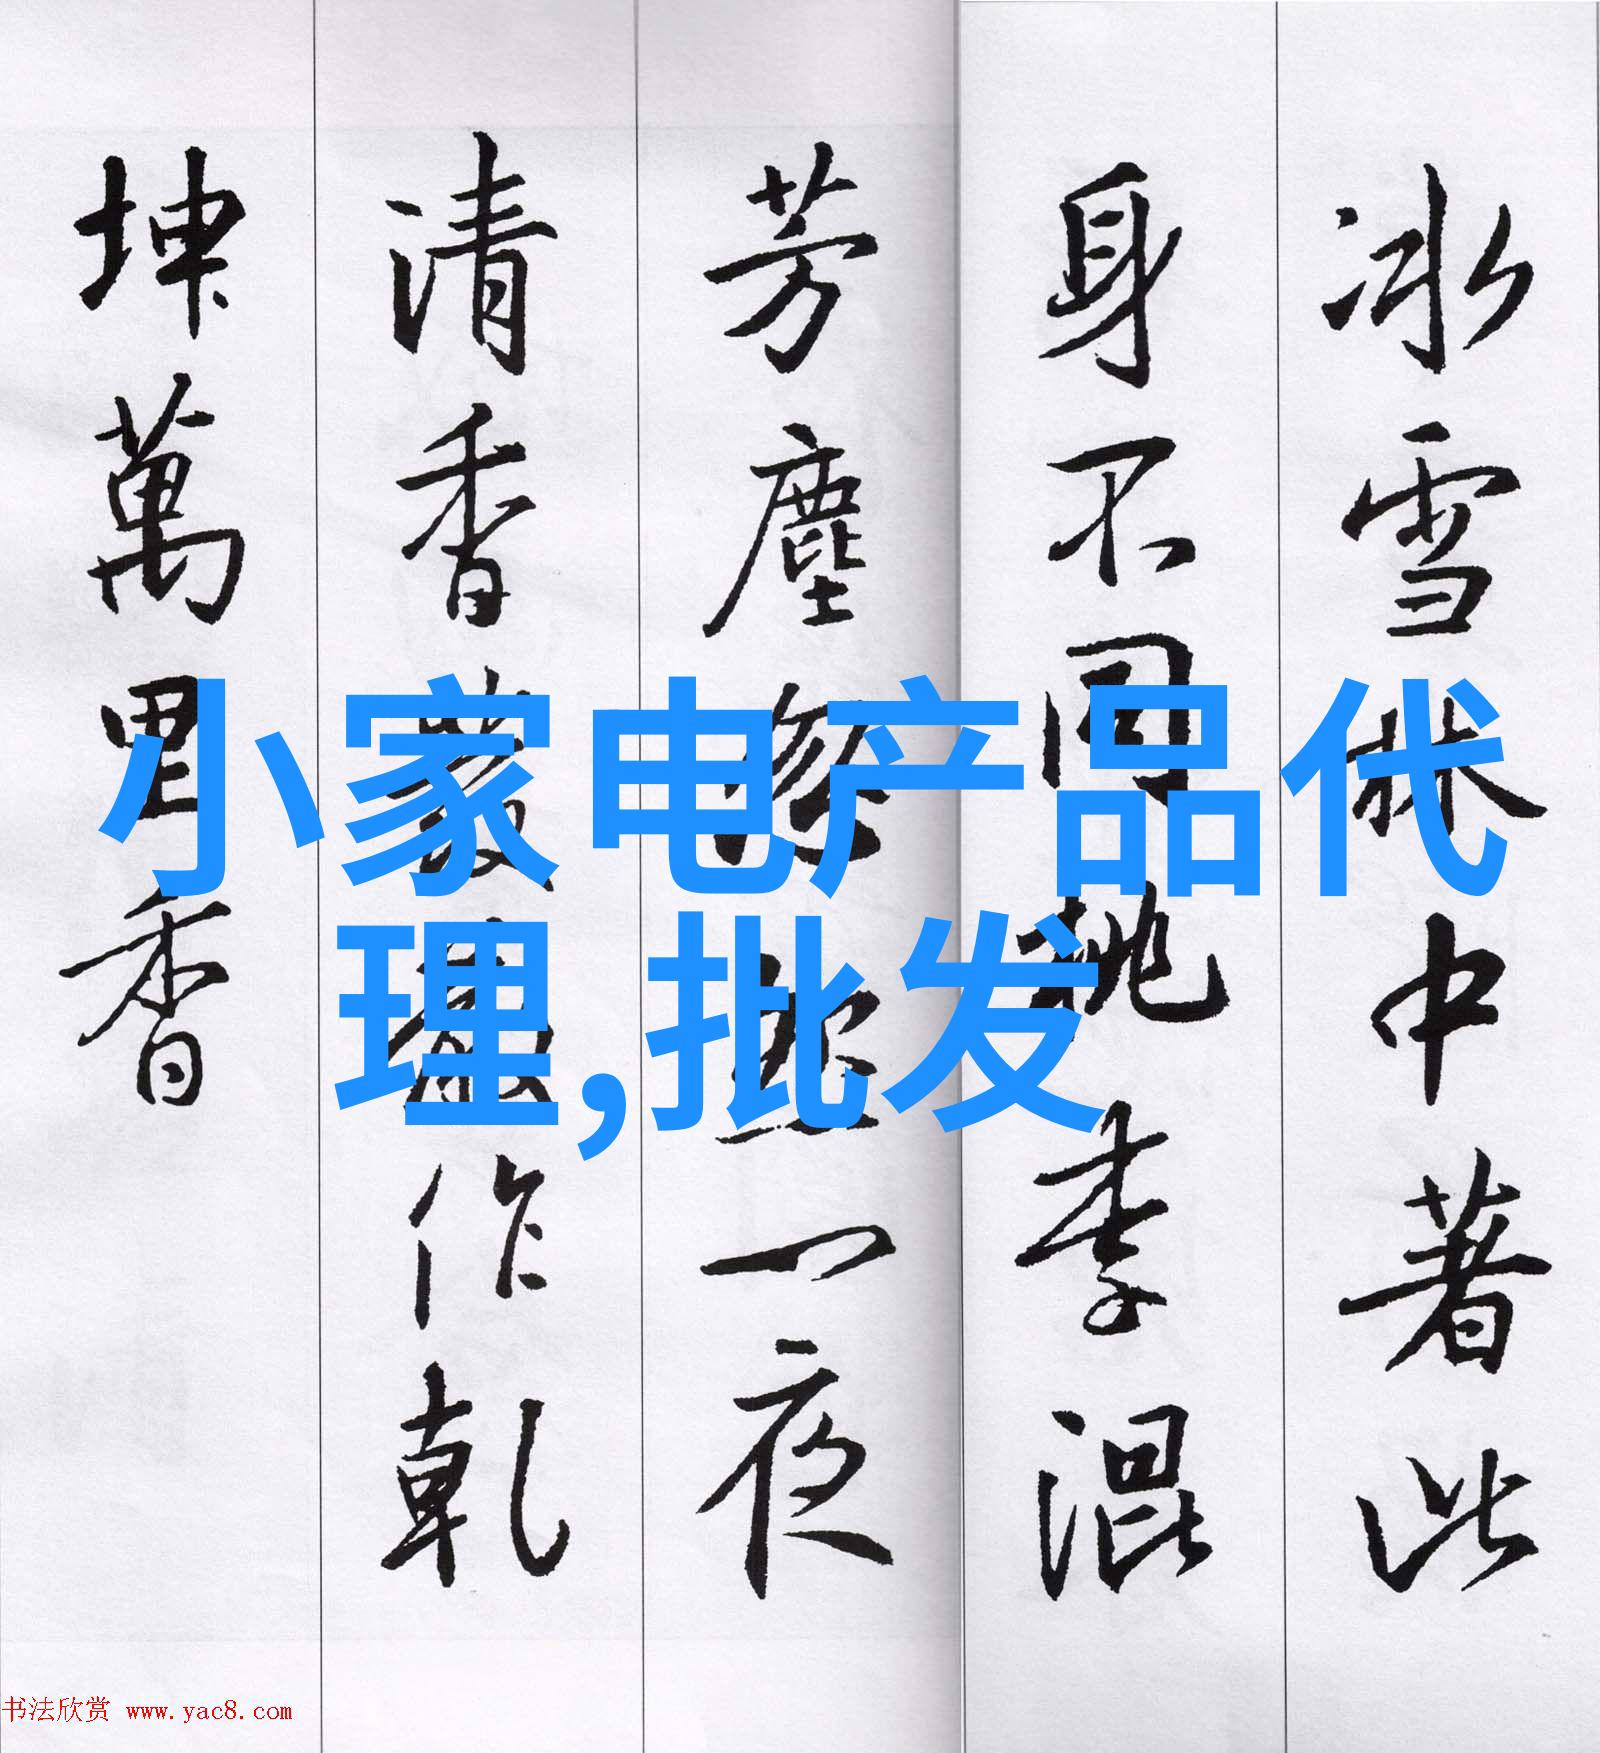 冰雪林中著此
身不同桃李混
芳塵忽然一夜
清香發散作乾
坤萬里香
小家电产品代
理,批发
书法欣赏 www.yac8.com